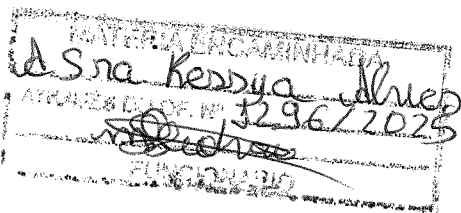 MATÉRIA ENCAMINHADA
A Sra Kessya Alves
ATRAVÉS DO OF. Nº 1296/2025
FUNCIONÁRIO